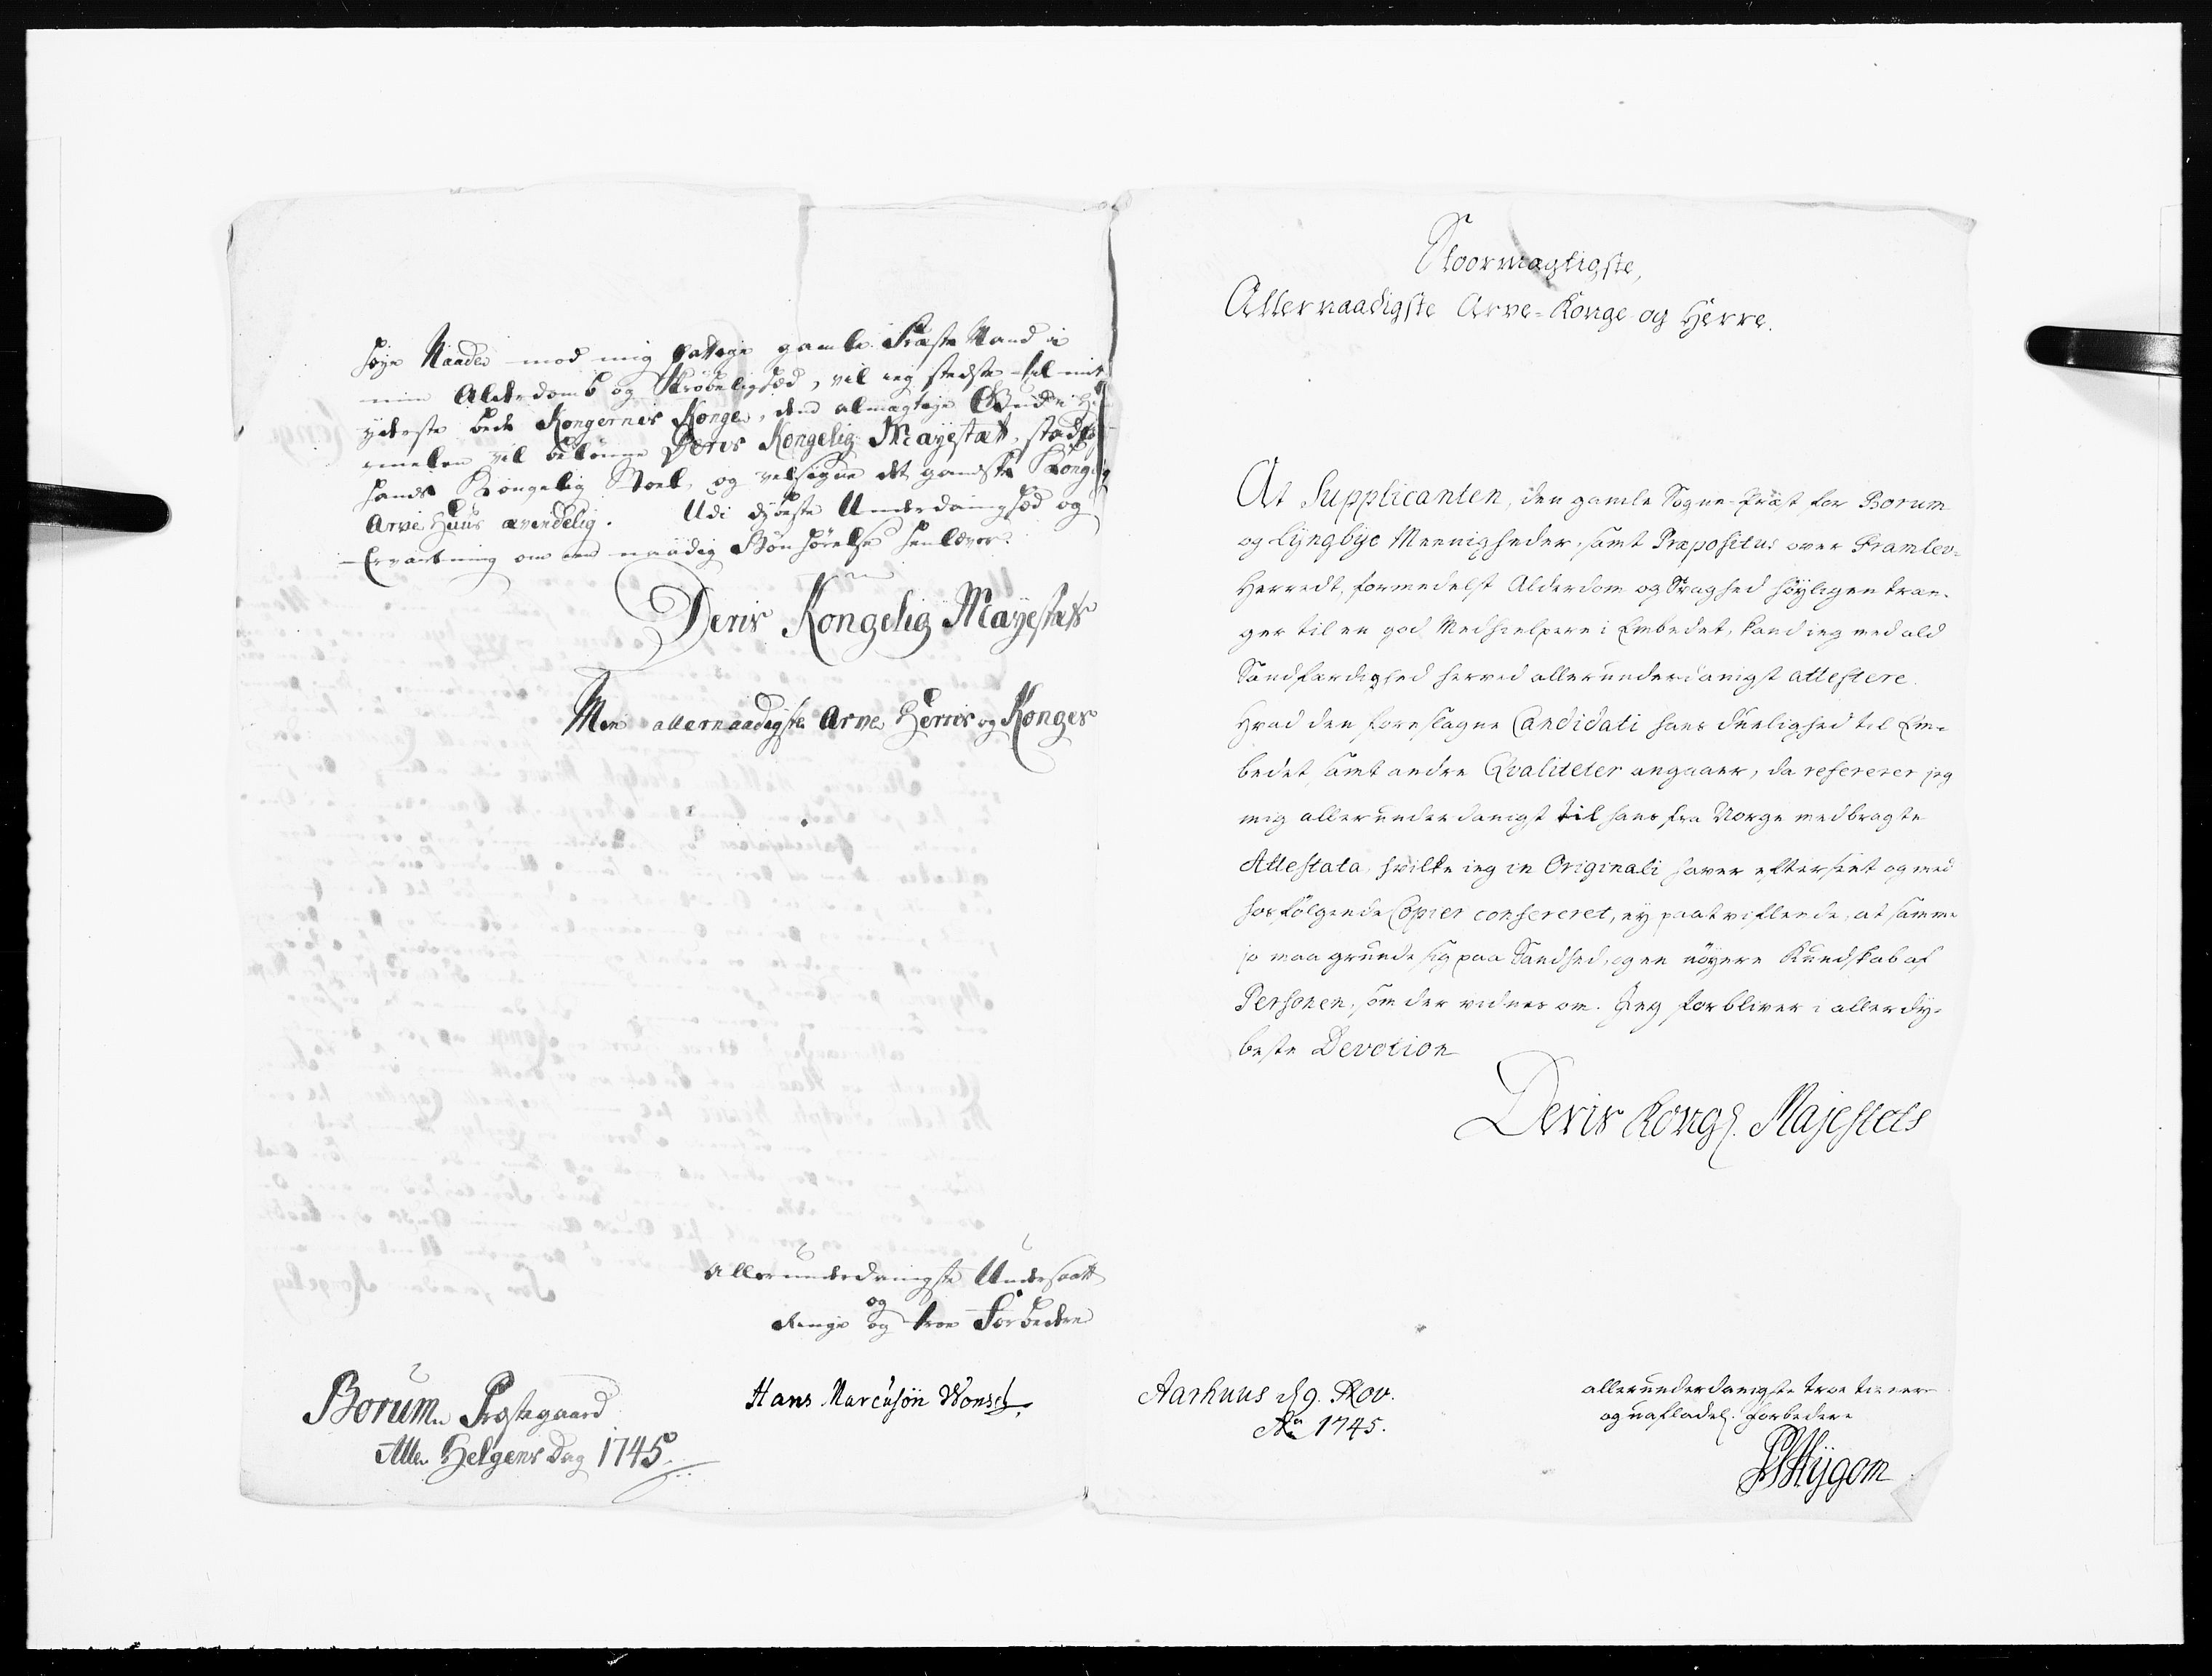 høye Naade mod mig fattige gamle Præste Mand i
min Alderdomb og Skrøbelighed, vil ieg stedse til mit
yderste bede Kongernes Konge, dend almægtige Gud i Hi
melen vil belønne Deres Kongelig Mayestæt, stadfæ
hands Kongelig Stoel, og velsigne det gandske Kongelig
Arve Huus ævindelig. Udi dybeste Underdanighed og
Ervartning om een naadig Bønhørelse henlever
Deris Kongelig Mayestets
Min allernaadigste Arve Herris og Konges
allerunderdanigste Undersaatt
og
ringe og troe Forbedere
Hans Marcusøn Wonsel
Borum Præstegaard
Alle Helgens Dag 1745
Stoormægtigste,
Allernaadigste Arve-Konge og Herre.
At Supplicanten, den gamle Sogne-Præst for Borum
og Lyngbye Meenigheder, samt Præpositus over Framlev-
Herredt, formedelst Alderdom og Svaghed høyligen træn-
ger til en god Medhielpere i Embedet, kand ieg med ald
Sandfærdighed herved allerunderdanigst attestere.
Hvad den foreslagne Candidati hans duelighed til Em-
bedet, samt andre Qvaliteter angaaer, da refererer jeg
mig allerunderdanigst til hans fra Norge medbragte
Attestata, hvilke ieg in Originali haver efterseet og med
hosfølgende Copier confereret, ey paatvivlende, at samme
jo maa grunde sig paa Sandhed, og en nøyere Kundskab af
Personen, som der vidnes om. Jeg forbliver i allerdy-
beste Devotion
Deris Kongl. Majestets
Aarhuus d 9. Nov.
Ao 1745.
allerunderdanigste troe tienere
og uafladel. forbedere
PHygom